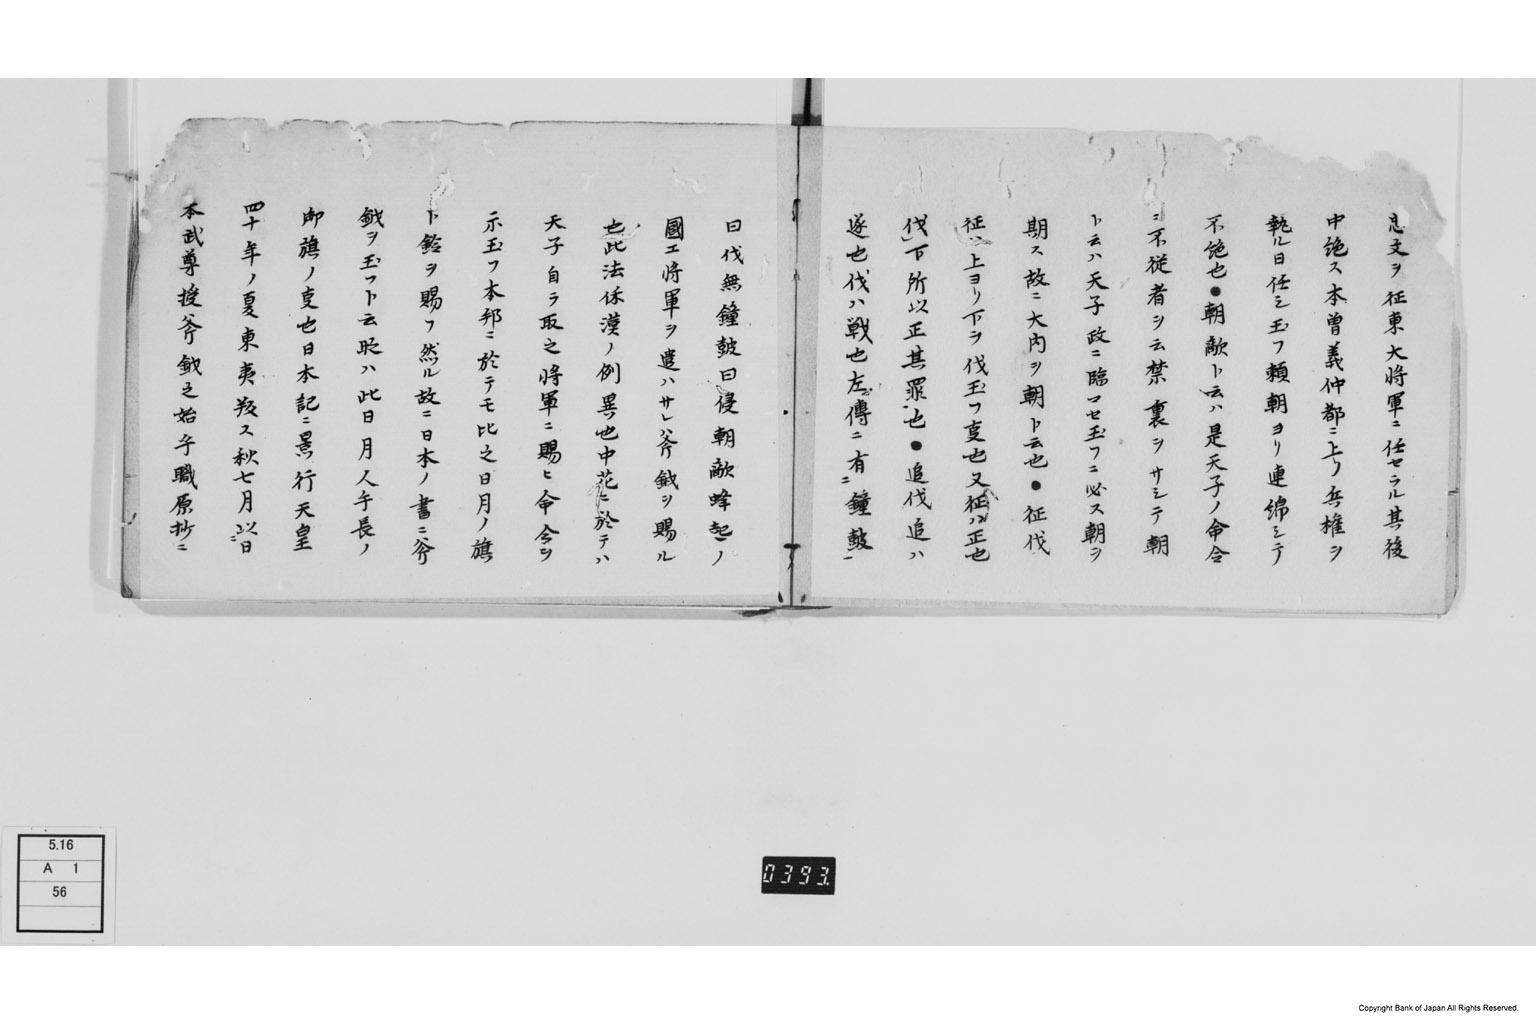 忠文ヲ征東大将軍ニ任セラル其後
中絶ス木曽義仲都ニ上リ兵権ヲ
執ル日任シ玉フ頼朝ヨリ連綿シテ
不絶也●朝敵ト云ハ是天子ノ命令
ニ不従者ヲ云禁裏ヲサシテ朝
ト云ハ天子政ニ臨マセ玉フニ必ス朝ヲ
期ス故ニ大内ヲ朝ト云也●征伐
征ハ上ヨリ下ヲ伐玉フ㕝也又征ハ正也
伐下所以正其罪也●追伐追ハ
逐也伐ハ戦也左傳ニ有鐘鼓
曰伐無鐘鼓曰侵朝敵蜂起ノ
國エ将軍ヲ遣ハサレハ斧鉞ヲ賜ル
也此法係漢ノ例異也中花ニ於テハ
天子自ラ取之将軍ニ賜ヒ命令ヲ
示玉フ本邦ニ於テモ比之日月ノ旗
ト鈴ヲ賜フ然ル故ニ日本ノ書ニ斧
鉞ヲ玉フト云㕝ハ此日月人手長ノ
御旗ノ㕝也日本記ニ景行天皇
四十年ノ夏東夷叛ス秋七月以日
本武尊授斧鉞之始乎職原抄ニ
5.16
A 1
56
0393
Copyright Bank of Japan All Rights Reserved.